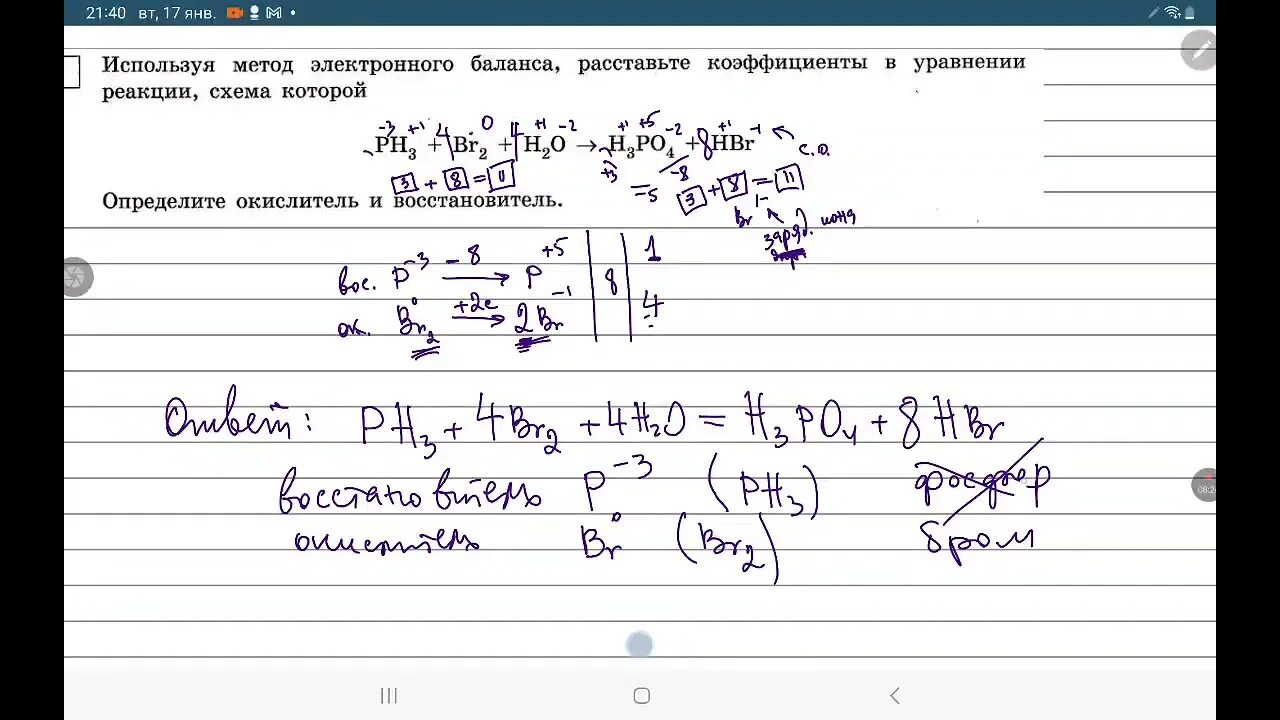 21:40 вт, 17 янв.
Используя метод электронного баланса, расставьте коэффициенты в уравнении
реакции, схема которой
-3 +1 0 +1 -2 +1 +5 -2 +1 -1
PH₃ + 4Br₂ + 4H₂O → H₃PO₄ + 8HBr с.о.
+3 -8
3 + 8 = 11 =5 3 + 8 = 11
Определите окислитель и восстановитель.
Br 1- заряд. иона
вос. P⁻³ -8 → P⁺⁵ | 8 | 1
ок. Br₂⁰ +2e → 2Br⁻¹ | | 4
Ответ: PH₃ + 4Br₂ + 4H₂O = H₃PO₄ + 8HBr
восстановитель P⁻³ (PH₃) фосфор
окислитель Br⁰ (Br₂) бром